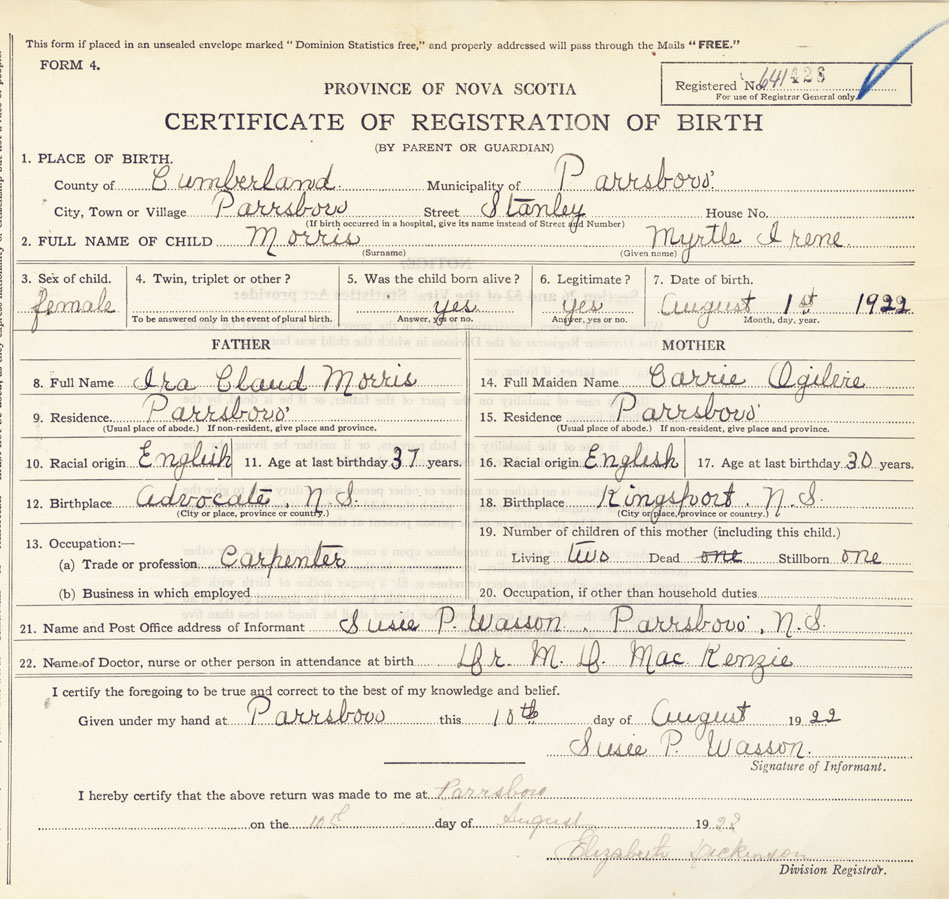 This form if placed in an unsealed envelope marked "Dominion Statistics free," and properly addressed will pass through the Mails "FREE."
FORM 4.
Registered No. 641428
For use of Registrar General only
PROVINCE OF NOVA SCOTIA
CERTIFICATE OF REGISTRATION OF BIRTH
(BY PARENT OR GUARDIAN)
1. PLACE OF BIRTH.
County of Cumberland. Municipality of Parrsboro'
City, Town or Village Parrsboro Street Stanley House No.
(If birth occurred in a hospital, give its name instead of Street and Number)
2. FULL NAME OF CHILD Morris Myrtle Irene.
(Surname) (Given name)
3. Sex of child. 4. Twin, triplet or other? 5. Was the child born alive? 6. Legitimate? 7. Date of birth.
female yes yes August 1st 1922
To be answered only in the event of plural birth. Answer, yes or no. Answer, yes or no. Month, day, year.
FATHER MOTHER
8. Full Name Ira Claud Morris 14. Full Maiden Name Carrie Ogilvie
9. Residence Parrsboro' 15. Residence Parrsboro'
(Usual place of abode.) If non-resident, give place and province. (Usual place of abode.) If non-resident, give place and province.
10. Racial origin English 11. Age at last birthday 37 years. 16. Racial origin English 17. Age at last birthday 30 years.
12. Birthplace Advocate, N.S. 18. Birthplace Kingsport, N.S.
(City or place, province or country.) (City or place, province or country.)
13. Occupation:— 19. Number of children of this mother (including this child.)
(a) Trade or profession Carpenter Living two Dead one Stillborn one
(b) Business in which employed 20. Occupation, if other than household duties
21. Name and Post Office address of Informant Susie P. Wasson. Parrsboro', N.S.
22. Name of Doctor, nurse or other person in attendance at birth Dr. M. D. Mac Kenzie
I certify the foregoing to be true and correct to the best of my knowledge and belief.
Given under my hand at Parrsboro this 10th day of August 1922
Susie P. Wasson.
Signature of Informant.
I hereby certify that the above return was made to me at Parrsboro
on the 10th day of August 192
Elizabeth Dickinson
Division Registrar.